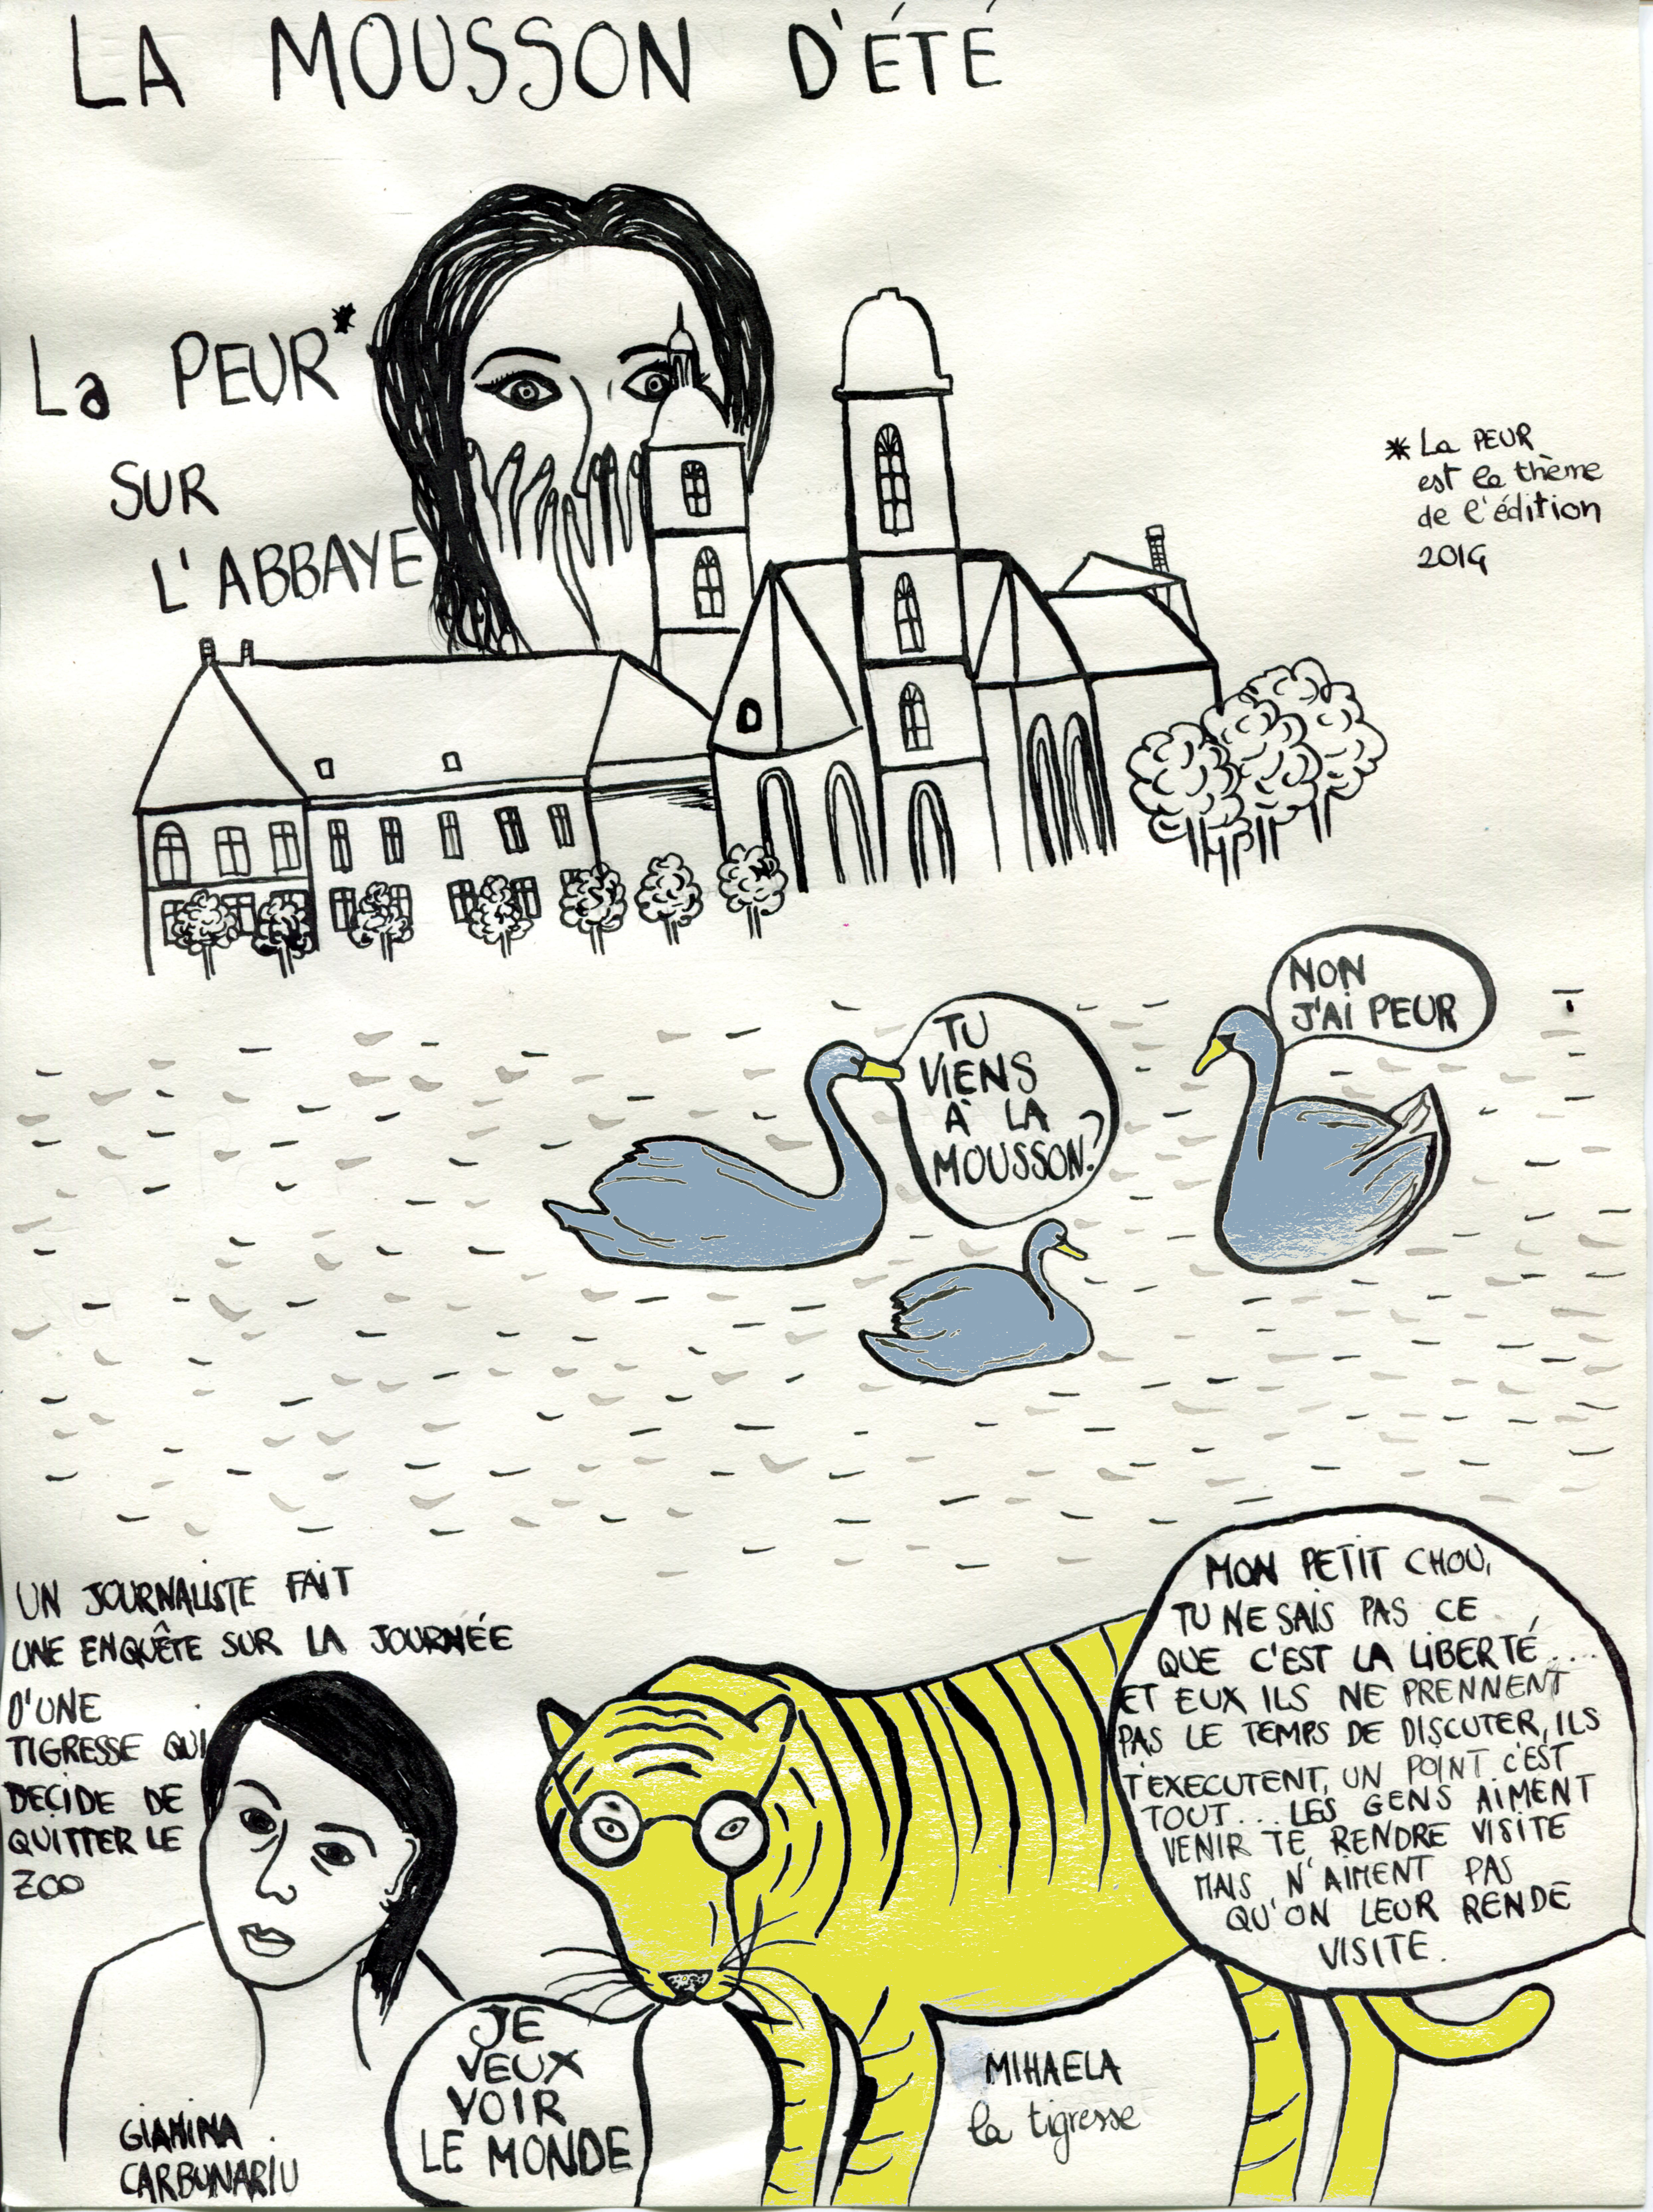 LA MOUSSON D'ÉTÉ
La PEUR*
SUR
L'ABBAYE
* La PEUR
est le thème
de l'édition
2014
TU
VIENS
À LA
MOUSSON?
NON
J'AI PEUR
UN JOURNALISTE FAIT
UNE ENQUÊTE SUR LA JOURNÉE
D'UNE
TIGRESSE QUI
DECIDE DE
QUITTER LE
ZOO
GIANINA
CARBUNARIU
JE
VEUX
VOIR
LE MONDE
MIHAELA
la tigresse
MON PETIT CHOU,
TU NE SAIS PAS CE
QUE C'EST LA LIBERTÉ....
ET EUX ILS NE PRENNENT
PAS LE TEMPS DE DISCUTER, ILS
T'EXECUTENT, UN POINT C'EST
TOUT... LES GENS AIMENT
VENIR TE RENDRE VISITE
MAIS N'AIMENT PAS
QU'ON LEUR RENDE
VISITE.